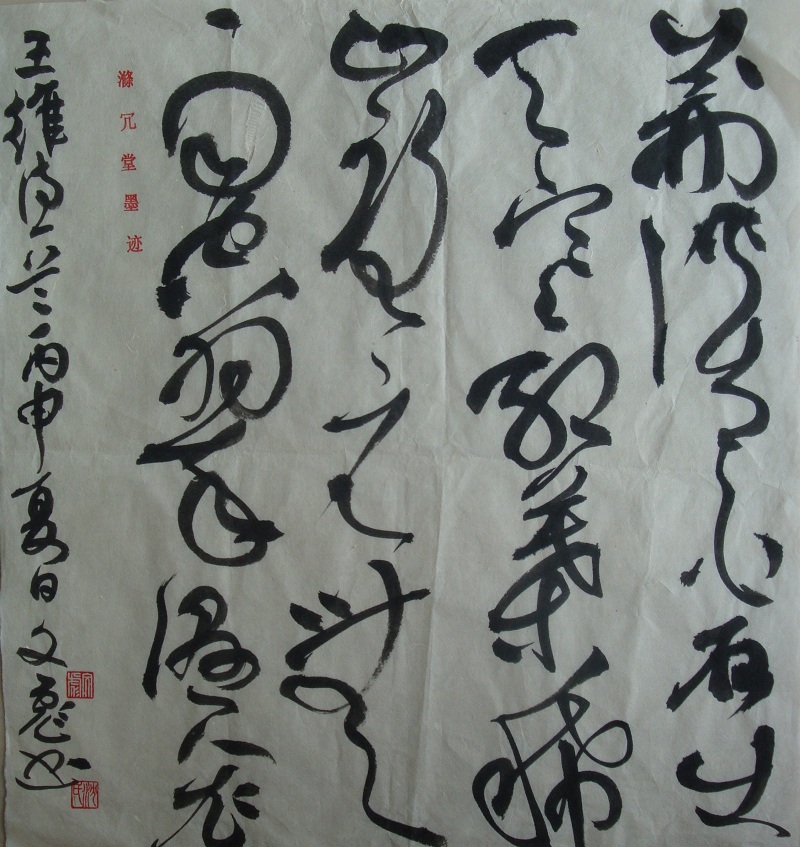 荆溪白石出
天寒紅葉稀
山路元無
雨空翠濕人衣
滌冗堂墨迹
王維詩一首丙申夏日文彪书